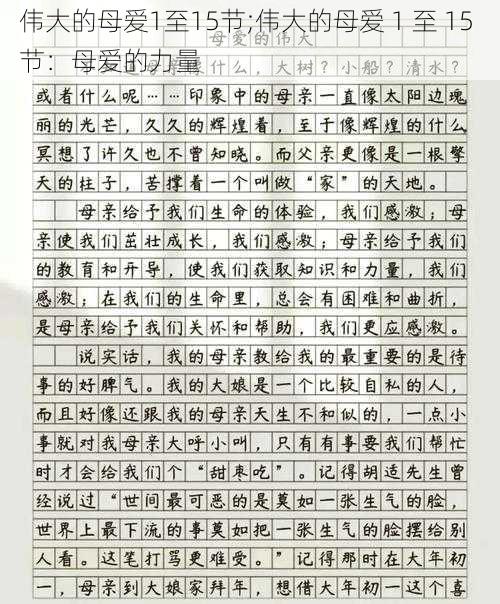 伟大的母爱1至15节;伟大的母爱 1 至 15
节：母爱的力量
母爱的伟大
是什么，大树？小船？清水？
或者什么呢……印象中的母亲一直像太阳边瑰
丽的光芒，久久的辉煌着，至于像辉煌的什么
冥想了许久也不曾知晓。而父亲更像是一根擎
天的柱子，苦撑着一个叫做“家”的天地。
母亲给予我们生命的体验，我们感激；母
亲使我们茁壮成长，我们感激；母亲给予我们
的教育和开导，使我们获取知识和力量，我们
感激；在我们的生命里，总会有困难和曲折，
是母亲给予我们关怀和帮助，我们更应感激。
说实话，我的母亲教给我的最重要的是待
事的好脾气。我的大娘是一个比较自私的人，
而且好像还跟我的母亲天生不和似的，一点小
事就对我母亲大呼小叫，只有有事要我们帮忙
时才会给我们个“甜枣吃”。记得胡适先生曾
经说过“世间最可恶的是莫如一张生气的脸，
世界上最下流的事莫如把一张生气的脸摆给别
人看。这笔打骂更难受。”记得那时在大年初
一，母亲到大娘家拜年，想借大年初一这个喜